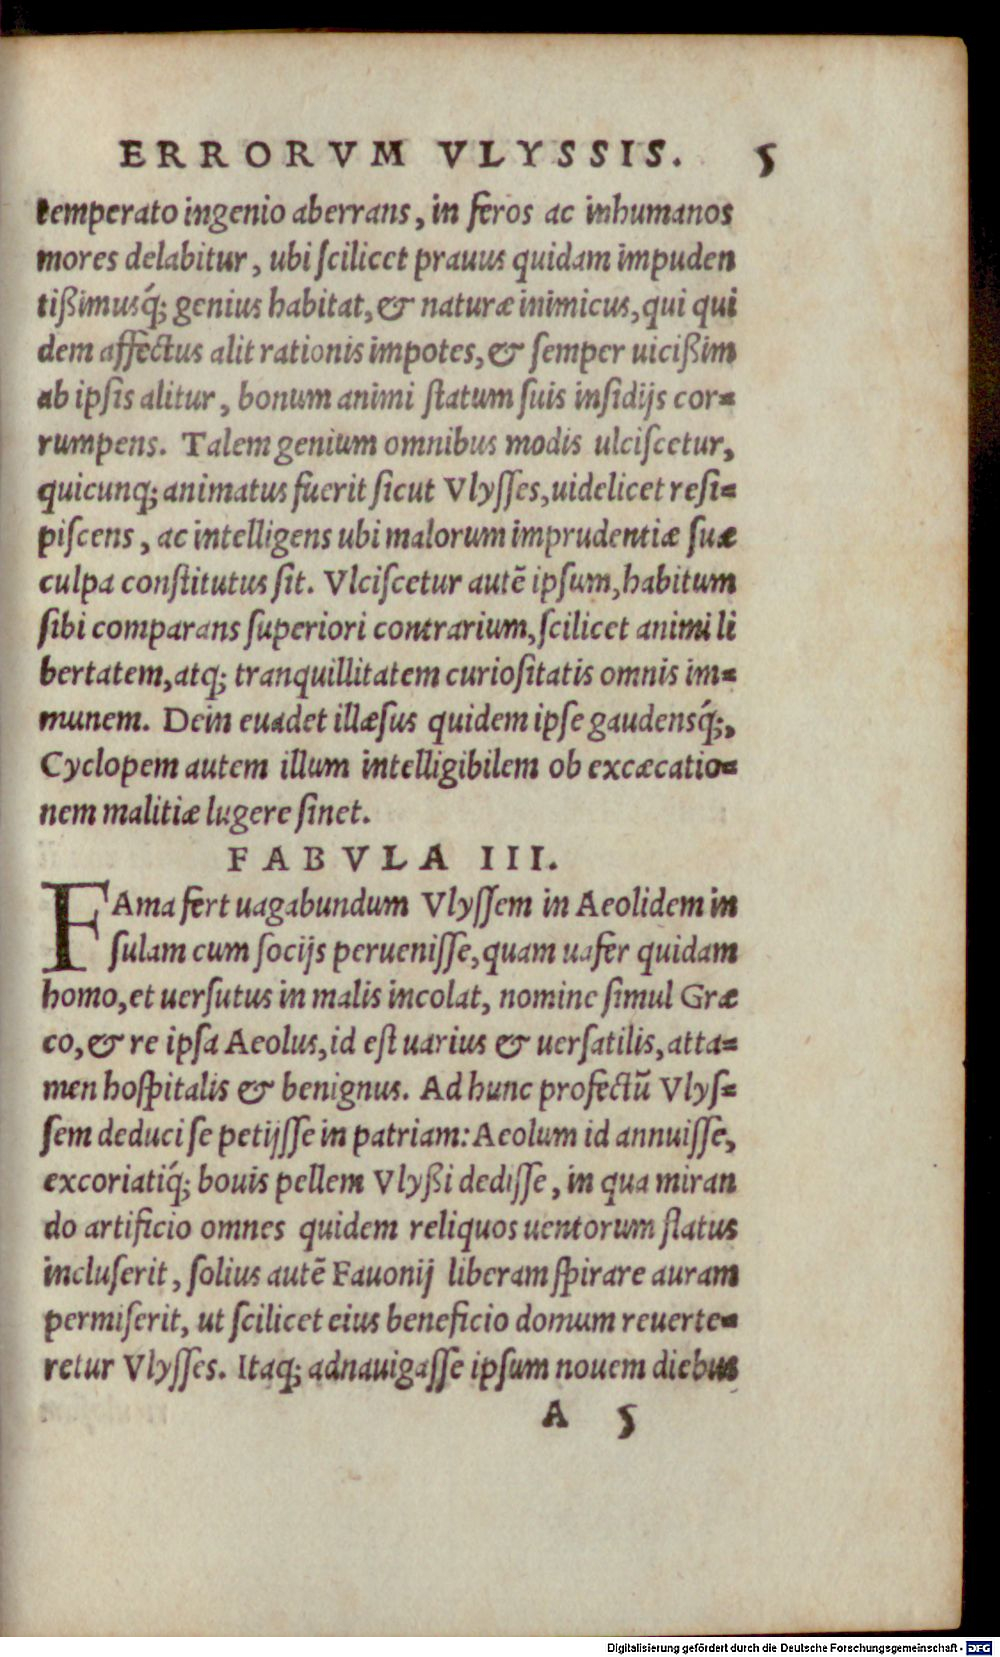 ERRORVM VLYSSIS. 5
temperato ingenio aberrans, in feros ac inhumanos
mores delabitur, ubi ſcilicet prauus quidam impuden
tißimusq́; genius habitat, & naturæ inimicus, qui qui
dem affectus alit rationis impotes, & ſemper uicißim
ab ipſis alitur, bonum animi ſtatum ſuis inſidijs cor=
rumpens. Talem genium omnibus modis ulciſcetur,
quicunq; animatus fuerit ſicut Vlyſſes, uidelicet reſi=
piſcens, ac intelligens ubi malorum imprudentiæ ſuæ
culpa conſtitutus ſit. Vlciſcetur autẽ ipſum, habitum
ſibi comparans ſuperiori contrarium, ſcilicet animi li
bertatem, atq; tranquillitatem curioſitatis omnis im=
munem. Dein euadet illæſus quidem ipſe gaudensq́;,
Cyclopem autem illum intelligibilem ob excæcatio=
nem malitiæ lugere ſinet.
FABVLA III.
FAma fert uagabundum Vlyſſem in Aeolidem in
ſulam cum ſocijs perueniſſe, quam uafer quidam
homo, et uerſutus in malis incolat, nomine ſimul Græ
co, & re ipſa Aeolus, id eſt uarius & uerſatilis, atta=
men hoſpitalis & benignus. Ad hunc profectũ Vlyſ=
ſem deduci ſe petijſſe in patriam: Aeolum id annuiſſe,
excoriatiq́; bouis pellem Vlyßi dediſſe, in qua miran
do artificio omnes quidem reliquos uentorum flatus
incluſerit, ſolius autẽ Fauonij liberam ſpirare auram
permiſerit, ut ſcilicet eius beneficio domum reuerte=
retur Vlyſſes. Itaq; adnauigaſſe ipſum nouem diebus
A 5
Digitalisierung gefördert durch die Deutsche Forschungsgemeinschaft - DFG